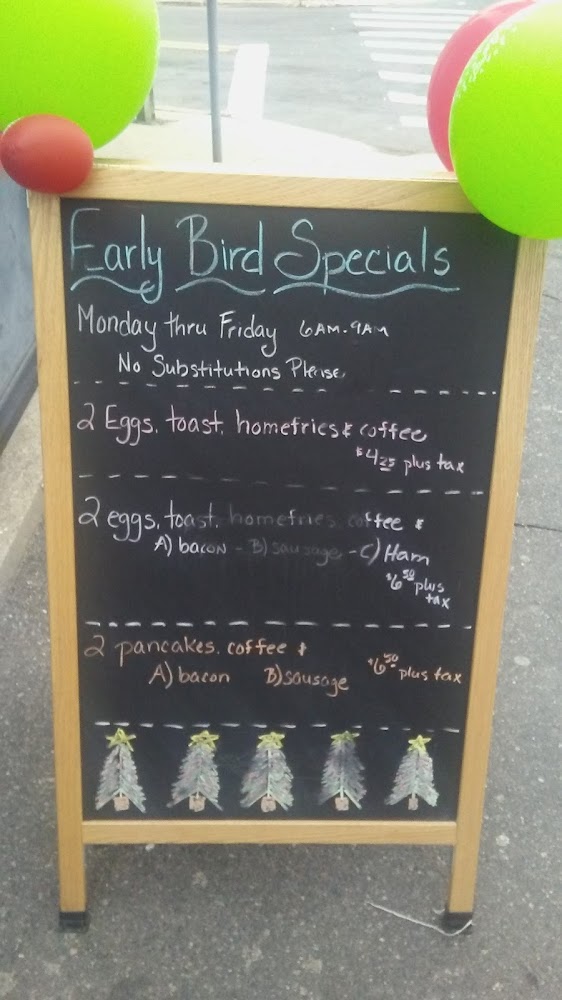 Early Bird Specials
Monday thru Friday 6AM-9AM
No Substitutions Please
2 Eggs, toast, homefries & coffee
$4.25 plus tax
2 eggs, toast, homefries, coffee &
A) bacon - B) sausage - C) Ham
$6.50 plus
tax
2 pancakes, coffee &
A) bacon B) sausage $6.50 plus tax